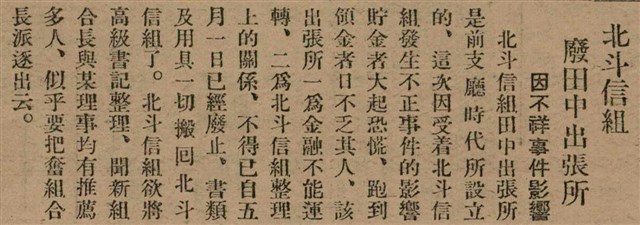 北斗信組
廢田中出張所
因不祥事件影響
北斗信組田中出張所
是前支廳時代所設立
的、這次因受着北斗信
組發生不正事件的影響
貯金者大起恐慌、跑到
領金者日不乏其人、該
出張所一爲金融不能運
轉、二爲北斗信組整理
上的關係、不得已自五
月一日已經廢止、書類
及用具一切搬回北斗
信組了。北斗信組欲將
高級書記整理、聞新組
合長與某理事均有推薦
多人、似乎要把奮組合
長派逐出云。